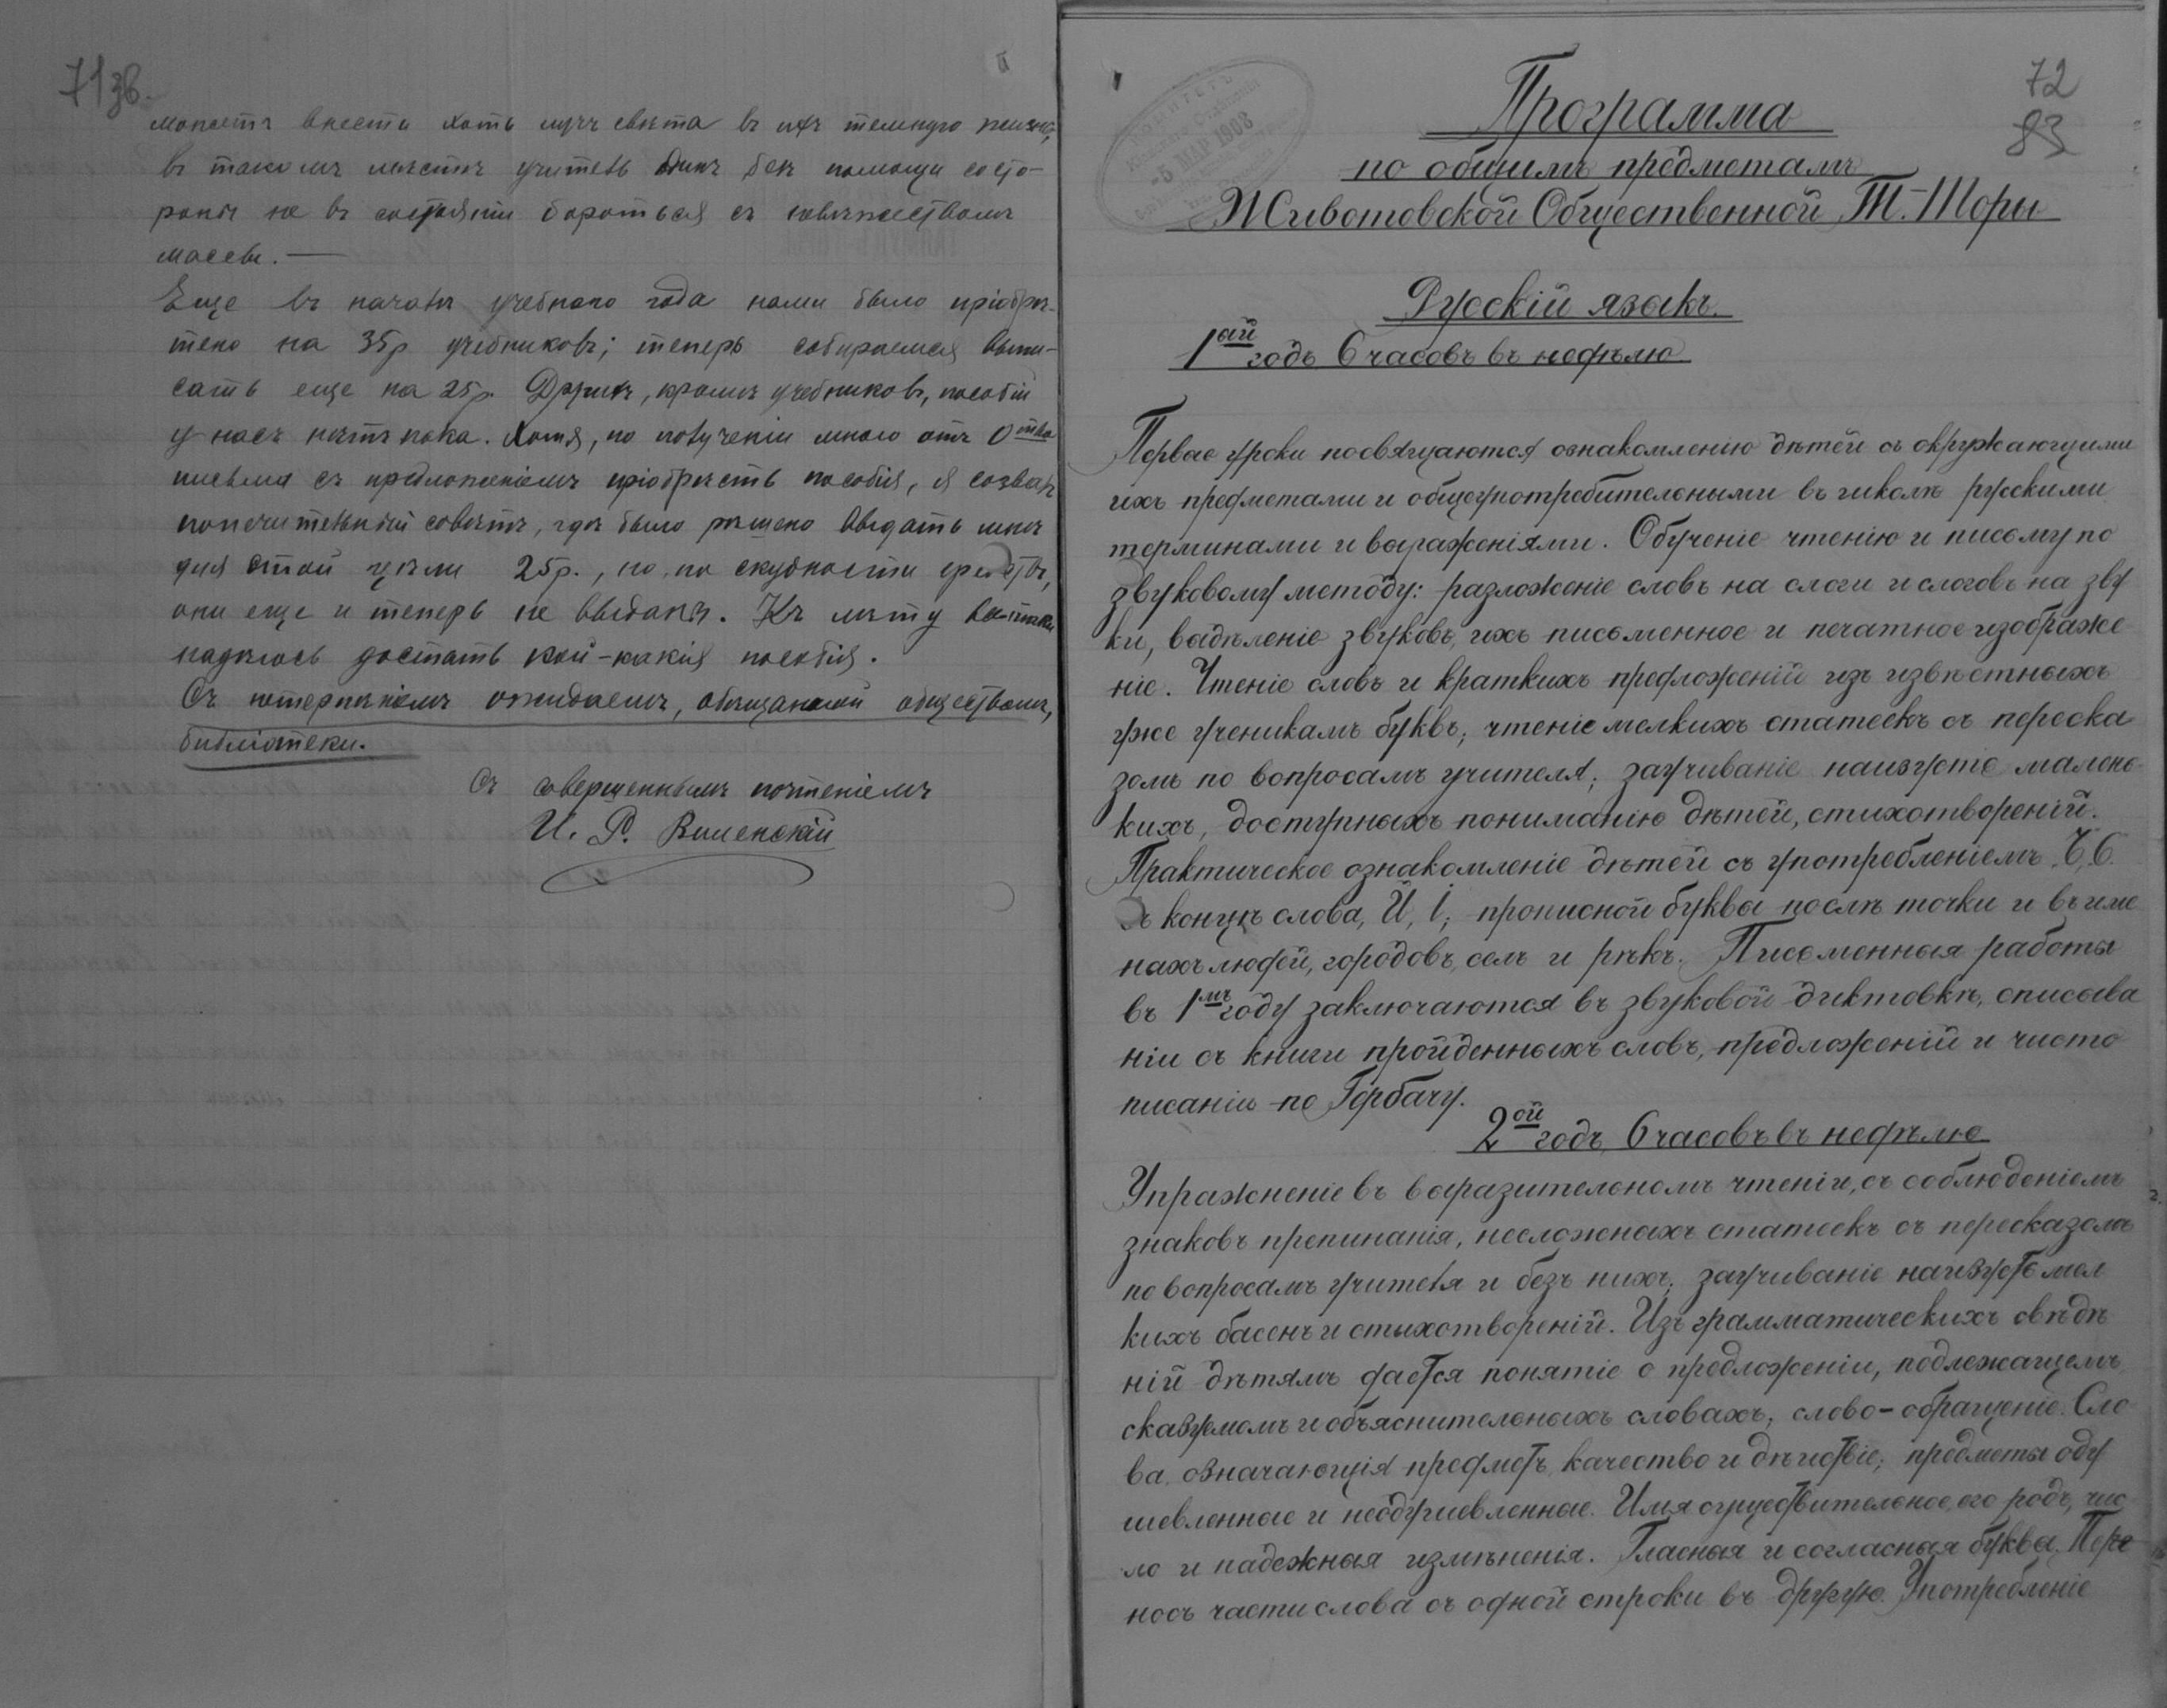 71 зв.
можетъ внести хоть лучъ свѣта въ ихъ темную жизнь,
въ такомъ мѣстѣ учитель одинъ безъ помощи со сто-
роны не въ состояніи бороться съ невѣжествомъ
массы. —
Еще въ началѣ учебнаго года нами было пріобрѣ-
тено на 35р учебниковъ; теперь собираемся выпи-
сать еще на 25р. Другихъ, кромѣ учебниковъ, пособій
у насъ нѣтъ пока. Хотя, по полученіи мною отъ О-тва
письма съ предложеніемъ пріобрѣсть пособія, я созвалъ
попечительный совѣтъ, гдѣ было рѣшено выдать мнѣ
для этой цѣли 25р., но, по скудности средствъ,
они еще и теперь не выданы. Къ лѣту все-таки
надѣюсь достать кой-какія пособія.
Съ нетерпѣніемъ ожидаемъ, обѣщанной обществомъ,
библіотеки.
Съ совершеннымъ почтеніемъ
И. Р. Виленскій
72
83
-5 МАР 1908
Программа
по общимъ предметамъ
Животовской Общественной Т.-Торы
Русскій языкъ.
1ый годъ 6 часовъ въ недѣлю
Первые уроки посвящаются ознакомленію дѣтей съ окружающими
ихъ предметами и общеупотребительными въ школѣ русскими
терминами и выраженіями. Обученіе чтенію и письму по
звуковому методу: разложеніе словъ на слоги и слоговъ на зву
ки, выдѣленіе звуковъ, ихъ письменное и печатное изображе
ніе. Чтеніе словъ и краткихъ предложеній изъ извѣстныхъ
уже ученикамъ буквъ; чтеніе мелкихъ статеекъ съ переска
зомъ по вопросамъ учителя; заучиваніе наизусть малень
кихъ, доступныхъ пониманію дѣтей, стихотвореній.
Практическое ознакомленіе дѣтей съ употребленіемъ Ъ, Ь
въ концѣ слова, Й, І; прописной буквы послѣ точки и въ име
нахъ людей, городовъ, селъ и рѣкъ. Письменныя работы
въ 1мъ году заключаются въ звуковой диктовкѣ, списыва
ніи съ книги пройденныхъ словъ, предложеній и чисто
писаніи по Гербачу.
2ой годъ, 6 часовъ въ недѣлю
Упражненіе въ выразительномъ чтеніи, съ соблюденіемъ
знаковъ препинанія, несложныхъ статеекъ съ пересказомъ
по вопросамъ учителя и безъ нихъ; заучиваніе наизусть мел
кихъ басенъ и стихотвореній. Изъ грамматическихъ свѣдѣ
ній дѣтямъ дается понятіе о предложеніи, подлежащемъ,
сказуемомъ и объяснительныхъ словахъ; слово-обращеніе. Сло
ва, означающія предметъ, качество и дѣйствіе; предметы оду
шевленные и неодушевленные. Имя существительное, его родъ, чис
ло и падежныя измѣненія. Гласныя и согласныя буквы. Пере
носъ части слова съ одной строки въ другую. Употребленіе